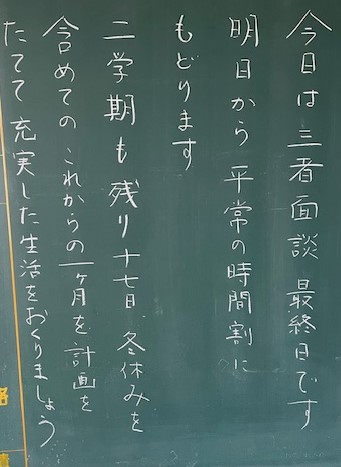 今日は三者面談 最終日です
明日から 平常の時間割に
もどります
二学期も残り十七日 冬休みを
含めてのこれからの一ヶ月を計画を
たてて充実した生活をおくりましょう